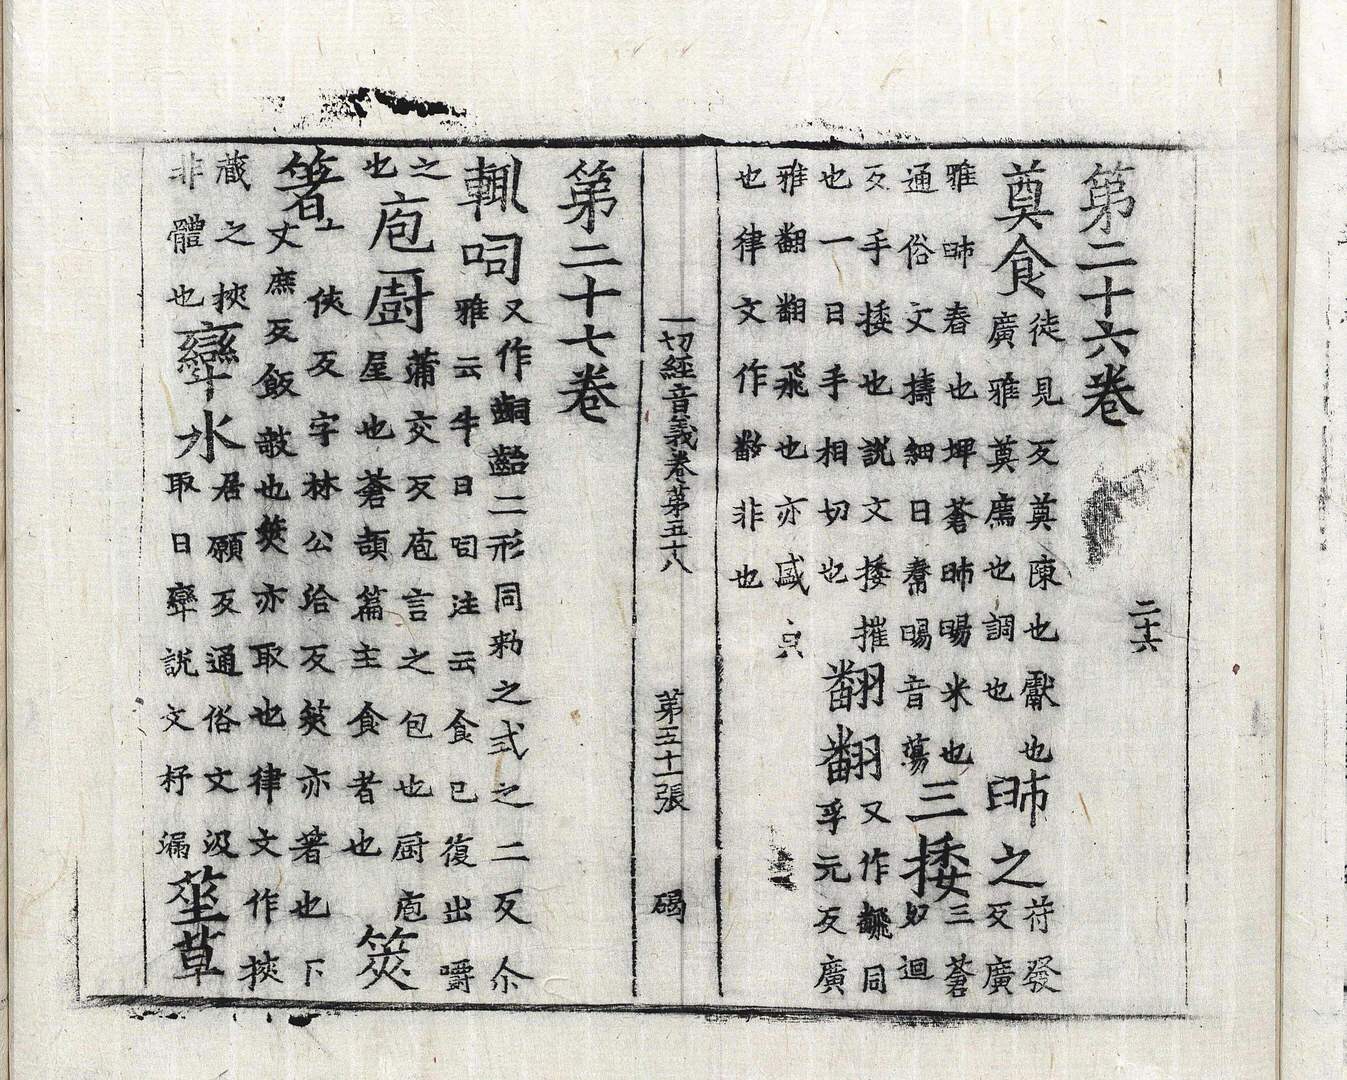 二十六
第二十六卷
奠食
徒見反奠陳也獻也
廣雅奠薦也調也
之
苻發
反廣
雅 舂也埤蒼 暘米也
通俗文擣細曰 暘音蕩
三捼
三蒼
奴迴
反手捼也説文捼摧
也一曰手相切也
翻翻
又作飜同
孚元反廣
雅翻翻飛也亦盛皃
也律文作 非也
一切經音義卷第五十八 第三十一張 碣
第二十七卷
輒呞
又作齝二形同勑之弍之二反尒
雅云牛曰呞注云食已復出嚼
之
也
庖厨
蒲交反庖言之包也厨庖
屋也蒼頡篇主食者也
筴
箸
上俠反字林公洽反筴亦箸也下
丈庶反飯敧也筴亦取也律文作挾
藏之挾
非體也
水
居願反通俗文汲
取曰 説文抒漏
莝草